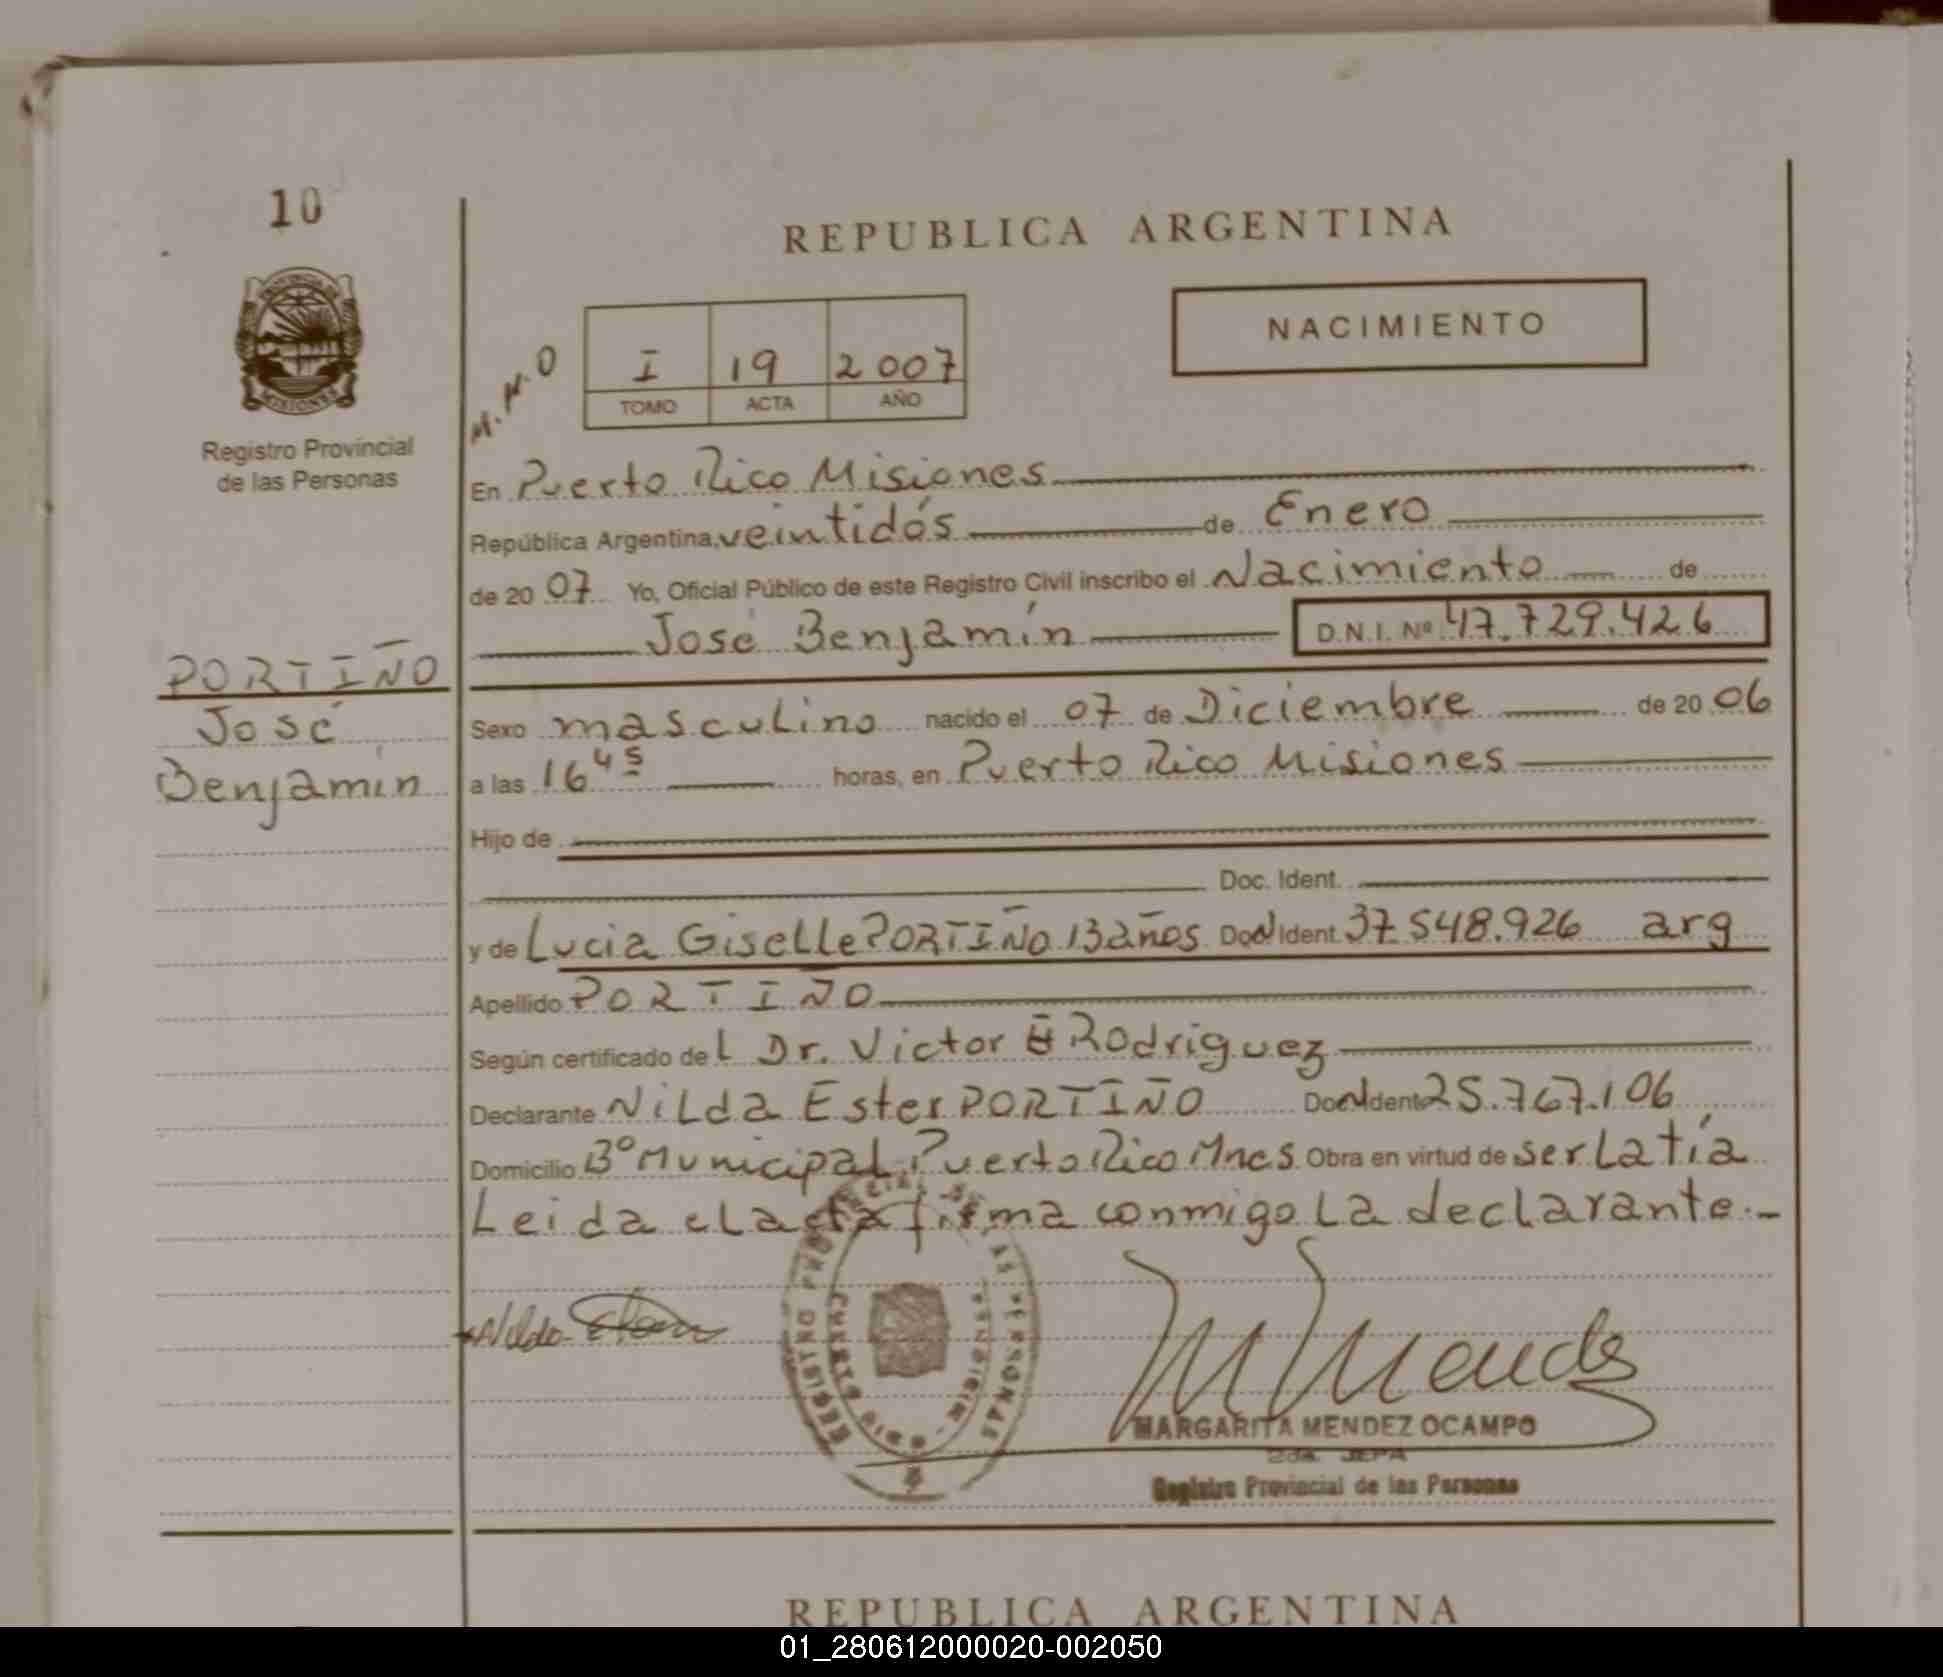 10
REPUBLICA ARGENTINA
NACIMIENTO
M.M.O
I 19 2007
TOMO ACTA AÑO
PROVINCIA DE
MISIONES
Registro Provincial
de las Personas
En Puerto Rico Misiones
República Argentina, veintidós de Enero
de 20 07 Yo, Oficial Público de este Registro Civil inscribo el Nacimiento de
José Benjamín D.N.I. Nº 47.729.426
PORTIÑO
José
Benjamín
Sexo masculino nacido el 07 de Diciembre de 20 06
a las 16 45 horas, en Puerto Rico Misiones
Hijo de
Doc. Ident.
y de Lucia Giselle PORTIÑO 13 años Doc. Ident. 37.548.926 arg
Apellido PORTIÑO
Según certificado del Dr. Victor Rodriguez
Declarante Nilda Ester PORTIÑO Doc. Ident. 25.767.106
Domicilio Bº Municipal Puerto Rico Mnes Obra en virtud de ser La tía
Leida el acta firma conmigo La declarante.-
REGISTRO PROVINCIAL DE LAS PERSONAS
PUERTO RICO - MISIONES
Nilda
M Mendez
MARGARITA MENDEZ OCAMPO
2da. JEFA
Registro Provincial de las Personas
REPUBLICA ARGENTINA
01_280612000020-002050